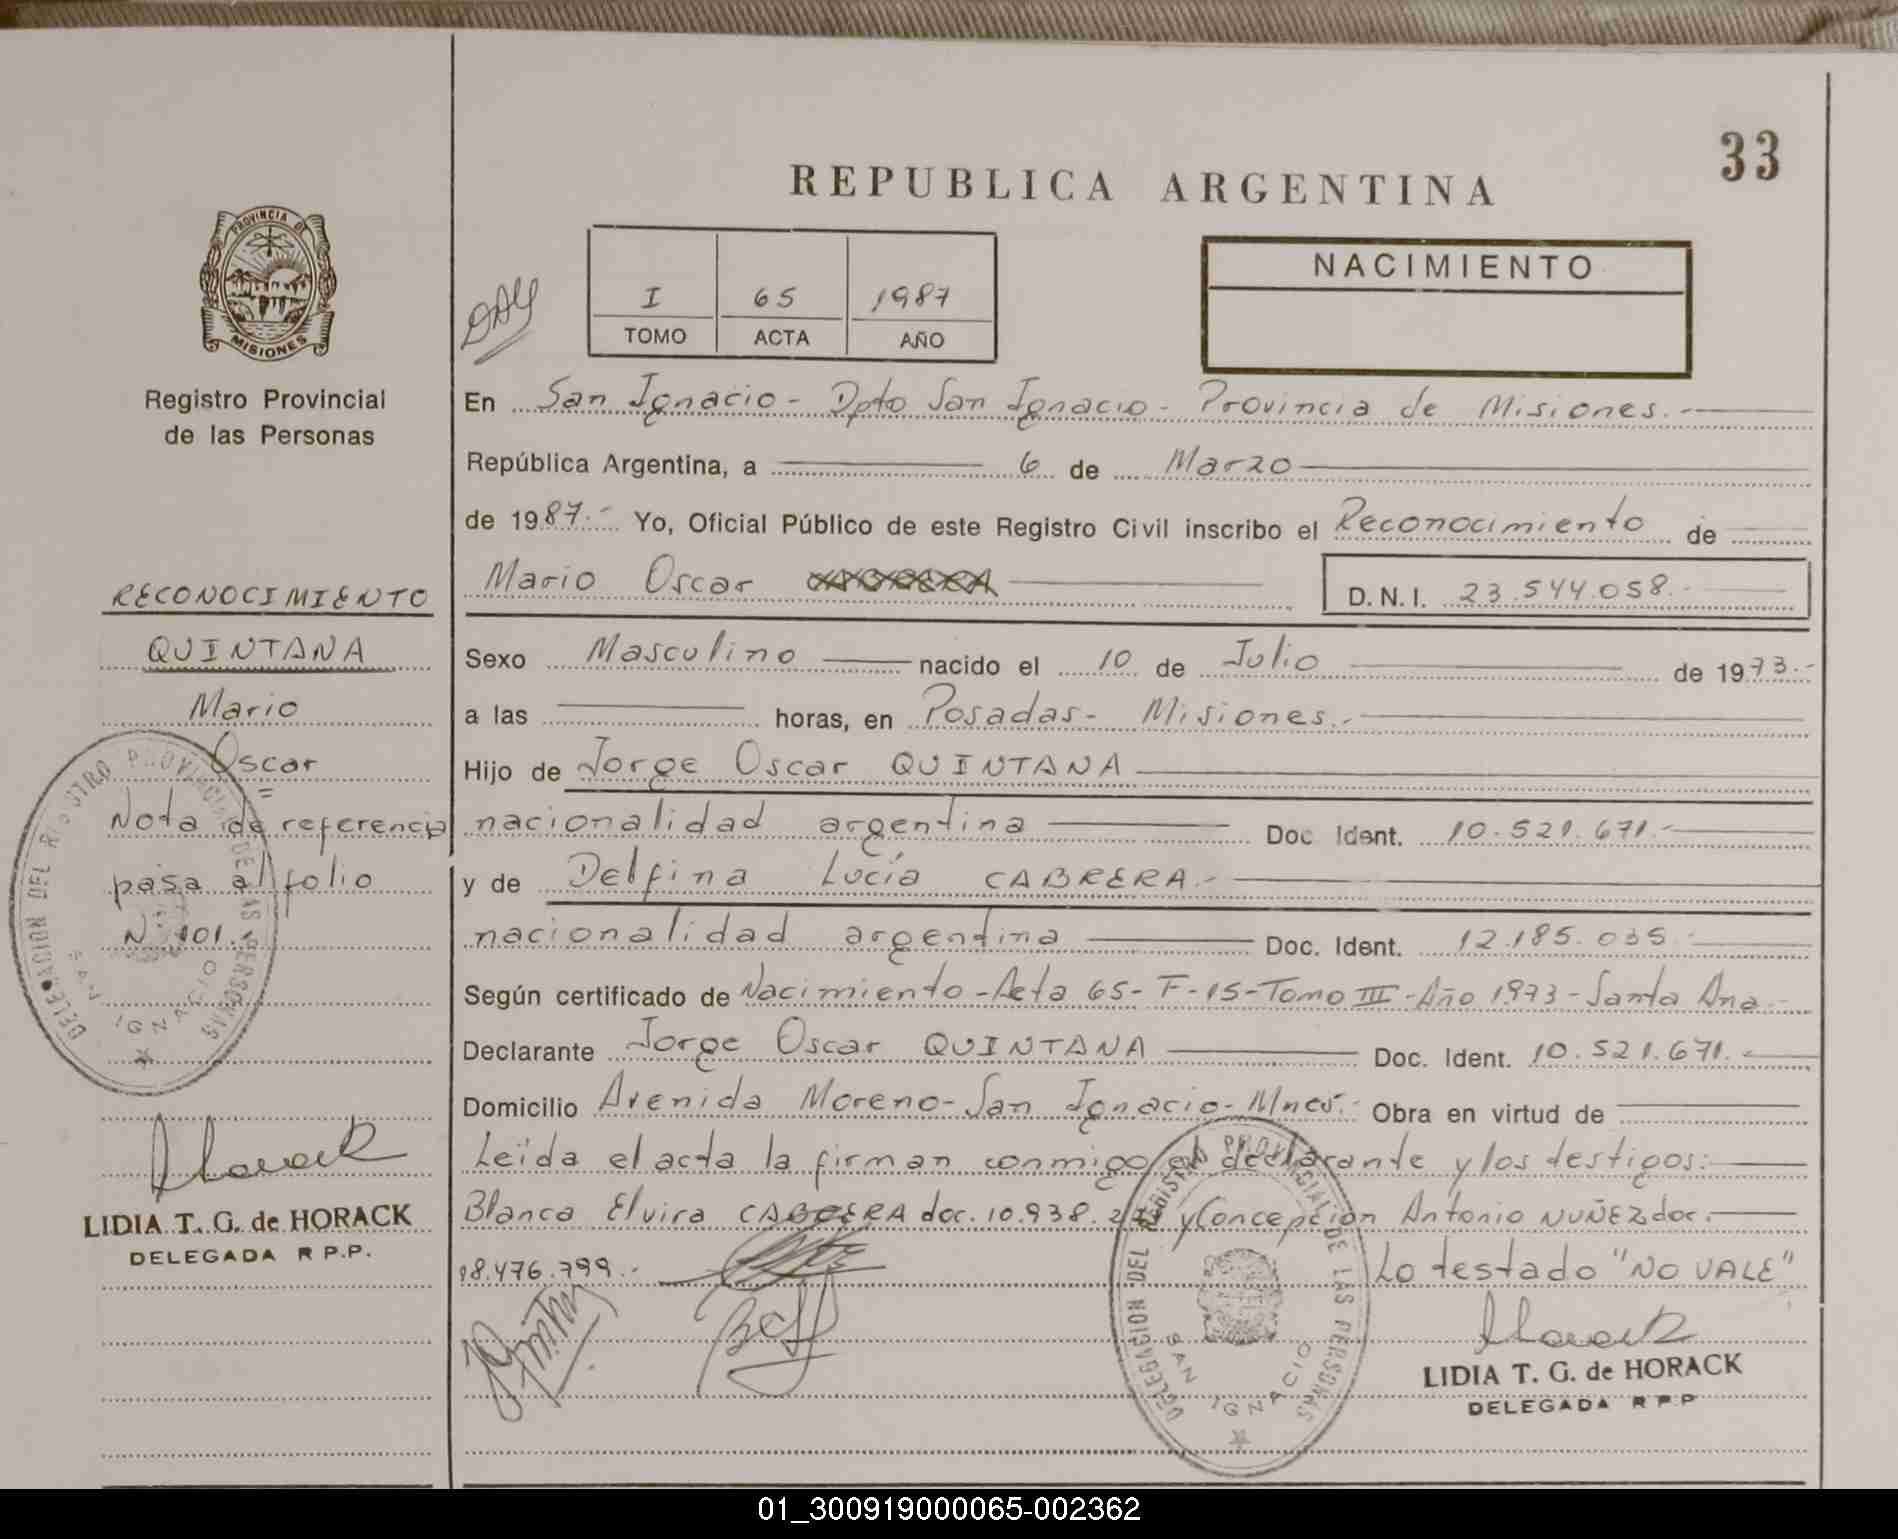 33
REPUBLICA ARGENTINA
PROVINCIA DE
MISIONES
Registro Provincial
de las Personas
I 65 1987
TOMO ACTA AÑO
NACIMIENTO
En San Ignacio - Dpto San Ignacio - Provincia de Misiones.-
República Argentina, a 6 de Marzo
de 1987.- Yo, Oficial Público de este Registro Civil inscribo el Reconocimiento de
Mario Oscar D.N.I. 23.544.058.-
Sexo Masculino nacido el 10 de Julio de 1973.-
a las horas, en Posadas- Misiones.-
Hijo de Jorge Oscar QUINTANA
nacionalidad argentina Doc Ident. 10.521.671.-
y de Delfina Lucía CABRERA.-
nacionalidad argentina Doc. Ident. 12.185.035.-
Según certificado de Nacimiento-Acta 65-F-15-Tomo III-Año 1973-Santa Ana.-
Declarante Jorge Oscar QUINTANA Doc. Ident. 10.521.671.-
Domicilio Avenida Moreno-San Ignacio-Mnes.- Obra en virtud de
Leída el acta la firman conmigo el declarante y los testigos:
Blanca Elvira CABRERA doc. 10.938. y Concepción Antonio NUÑEZ doc.
08.476.799.- Lo testado "NO VALE"
DELEGACION DEL REGISTRO PROVINCIAL DE LAS PERSONAS
SAN IGNACIO
LIDIA T. G. de HORACK
DELEGADA R P P
RECONOCIMIENTO
QUINTANA
Mario
Oscar
Nota de referencia
pasa al folio
Nº 101.
DELEGACION DEL REGISTRO PROVINCIAL DE LAS PERSONAS
SAN IGNACIO
LIDIA T. G. de HORACK
DELEGADA R P.P.
01_300919000065-002362